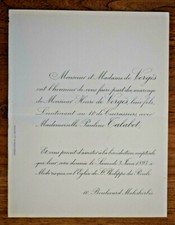 Monsieur et Madame de Vergès
ont l'honneur de vous faire part du mariage
de Monsieur Henri de Vergès leur fils,
Lieutenant au 10e de Cuirassiers avec
Mademoiselle Pauline Talabot.
Et vous prient d'assister à la bénédiction nuptiale
qui leur sera donnée le Samedi 3 Juin
à Midi en l'Église de St Philippe du Roule.
Boulevard Malesherbes.